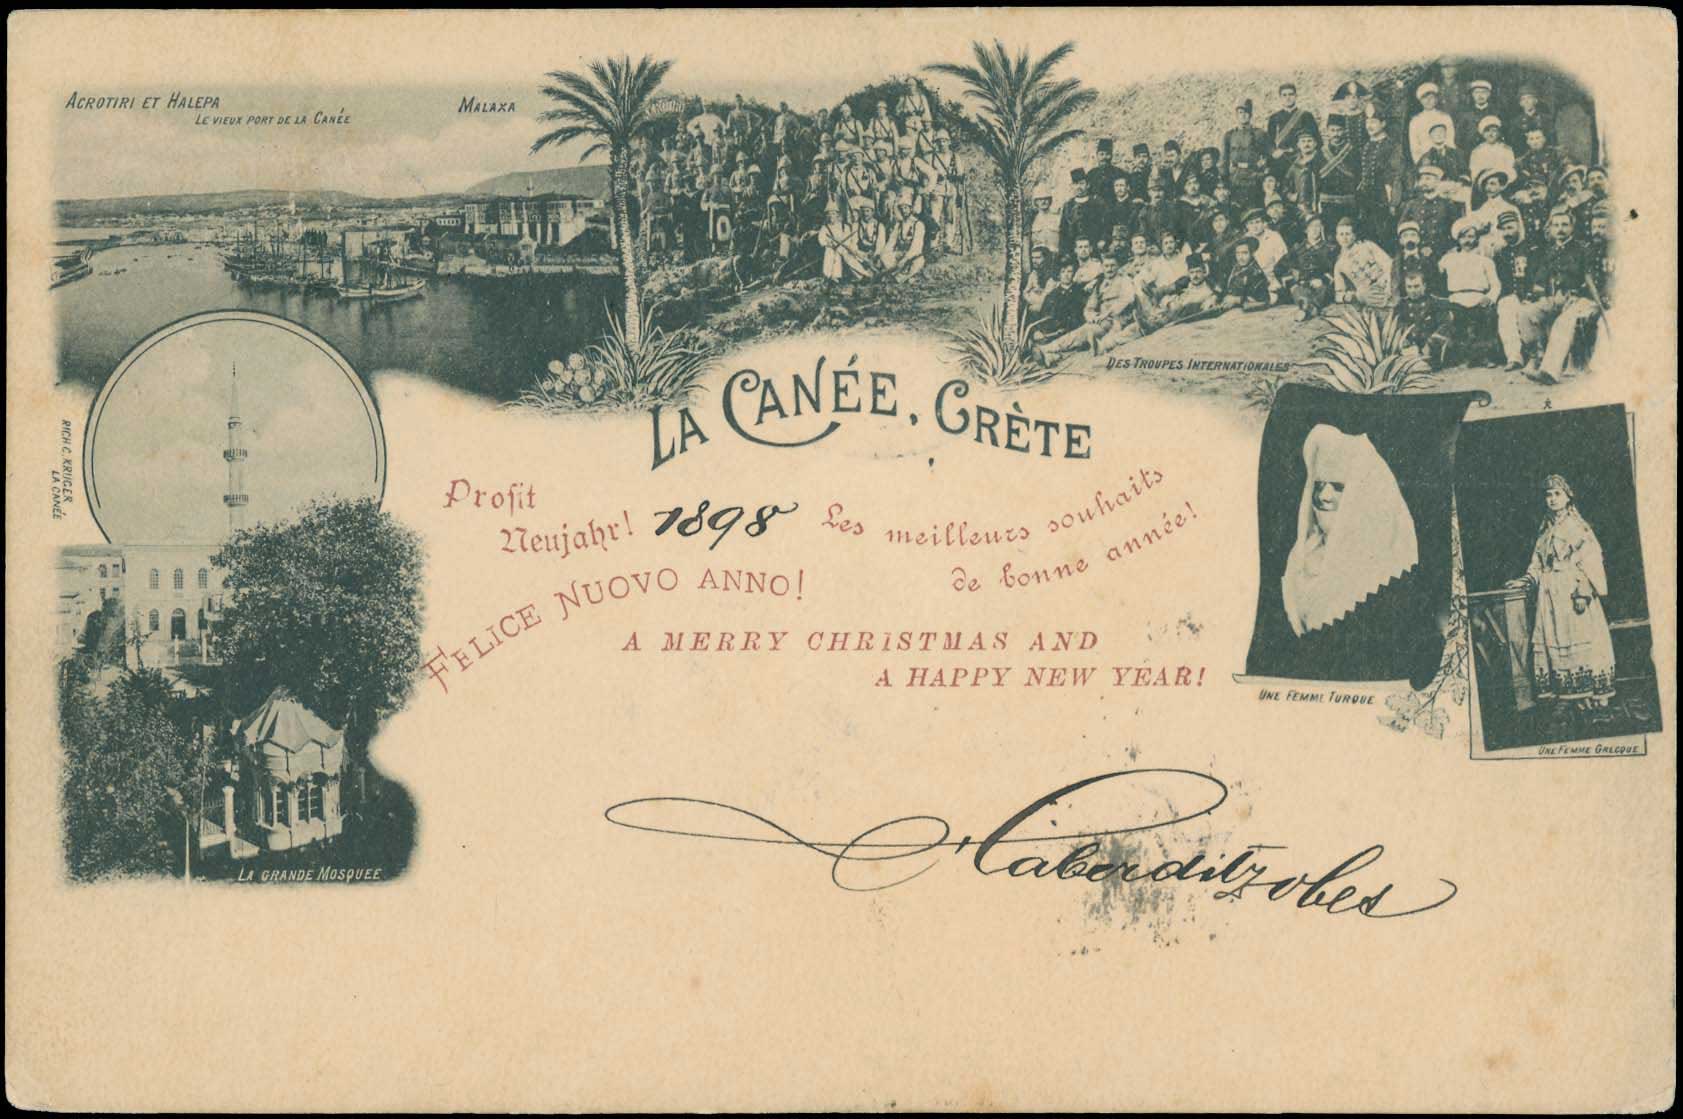 ACROTIRI ET HALEPA
LE VIEUX PORT DE LA CANÉE
MALAXA
DES TROUPES INTERNATIONALES
LA CANÉE, CRÈTE
RICH. C. KRÜGER
LA CANÉE
Prosit
Neujahr!
1898
Les meilleurs souhaits
de bonne année!
FELICE NUOVO ANNO!
A MERRY CHRISTMAS AND
A HAPPY NEW YEAR!
UNE FEMME TURQUE
UNE FEMME GRECQUE
LA GRANDE MOSQUEE